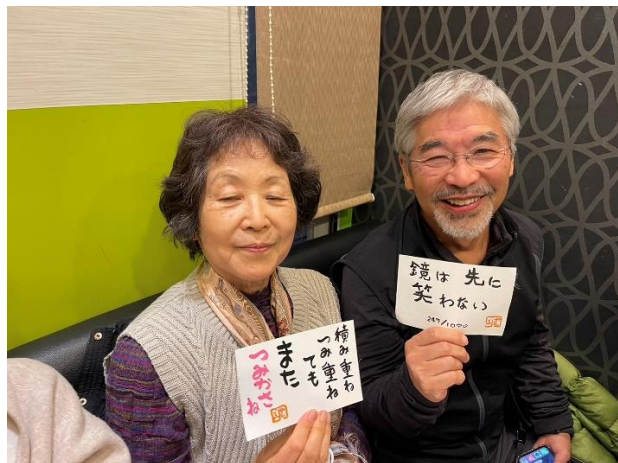 積み重ね
つみ重ね
ても
また
つみかさ
ね
鏡は 先に
笑わない